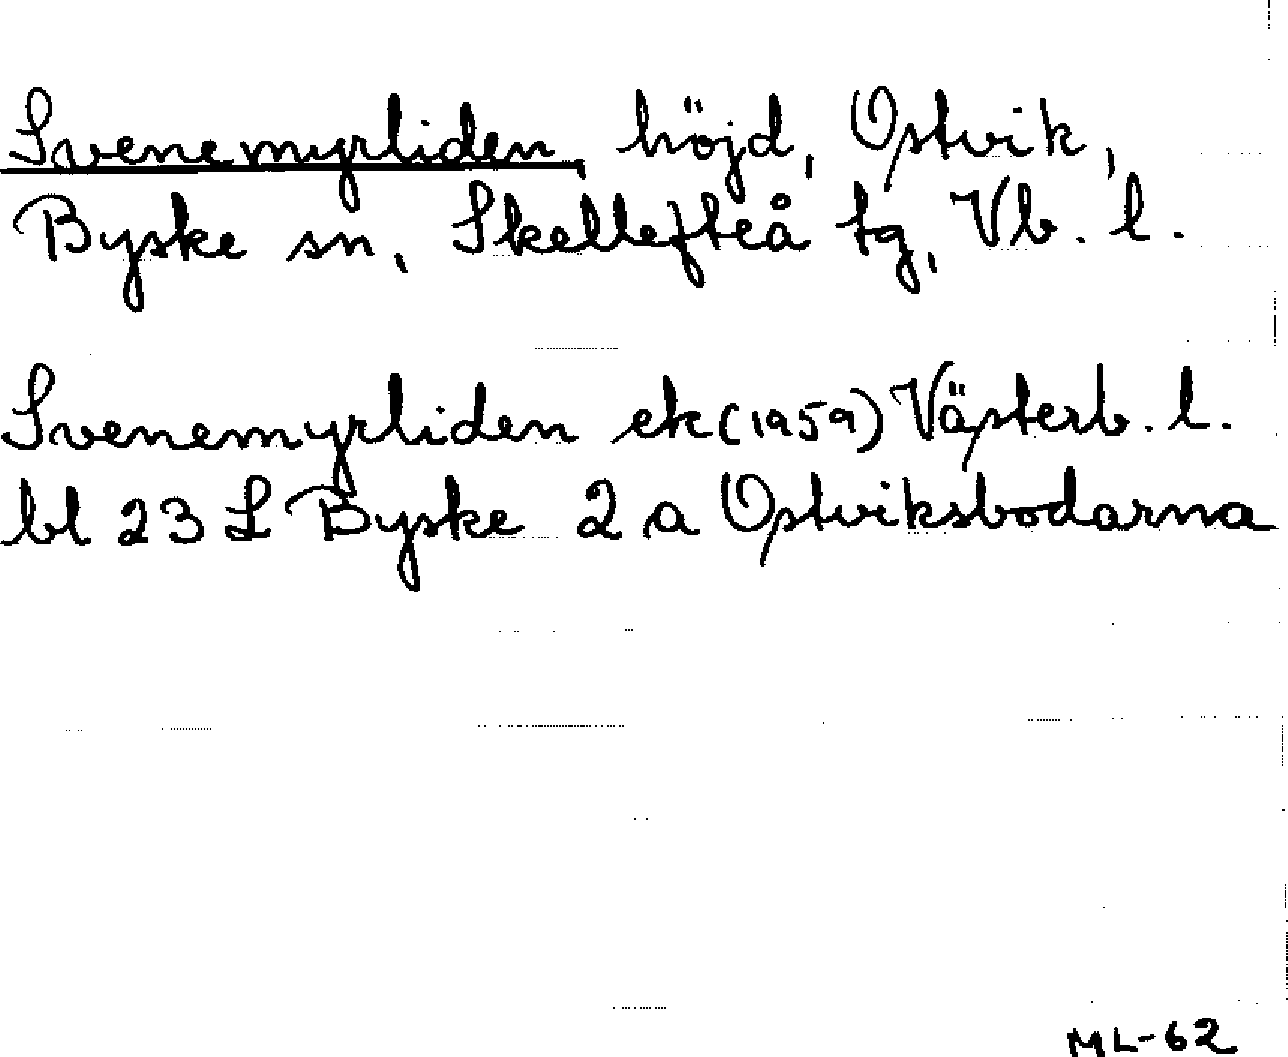 Svenemyrliden, höjd, Ostvik,
Byske sn, Skellefteå tg, Vb. l.
Svenemyrliden ek (1959) Västerb. l.
bl 23 L Byske 2 a Ostviksbodarna
ML-62